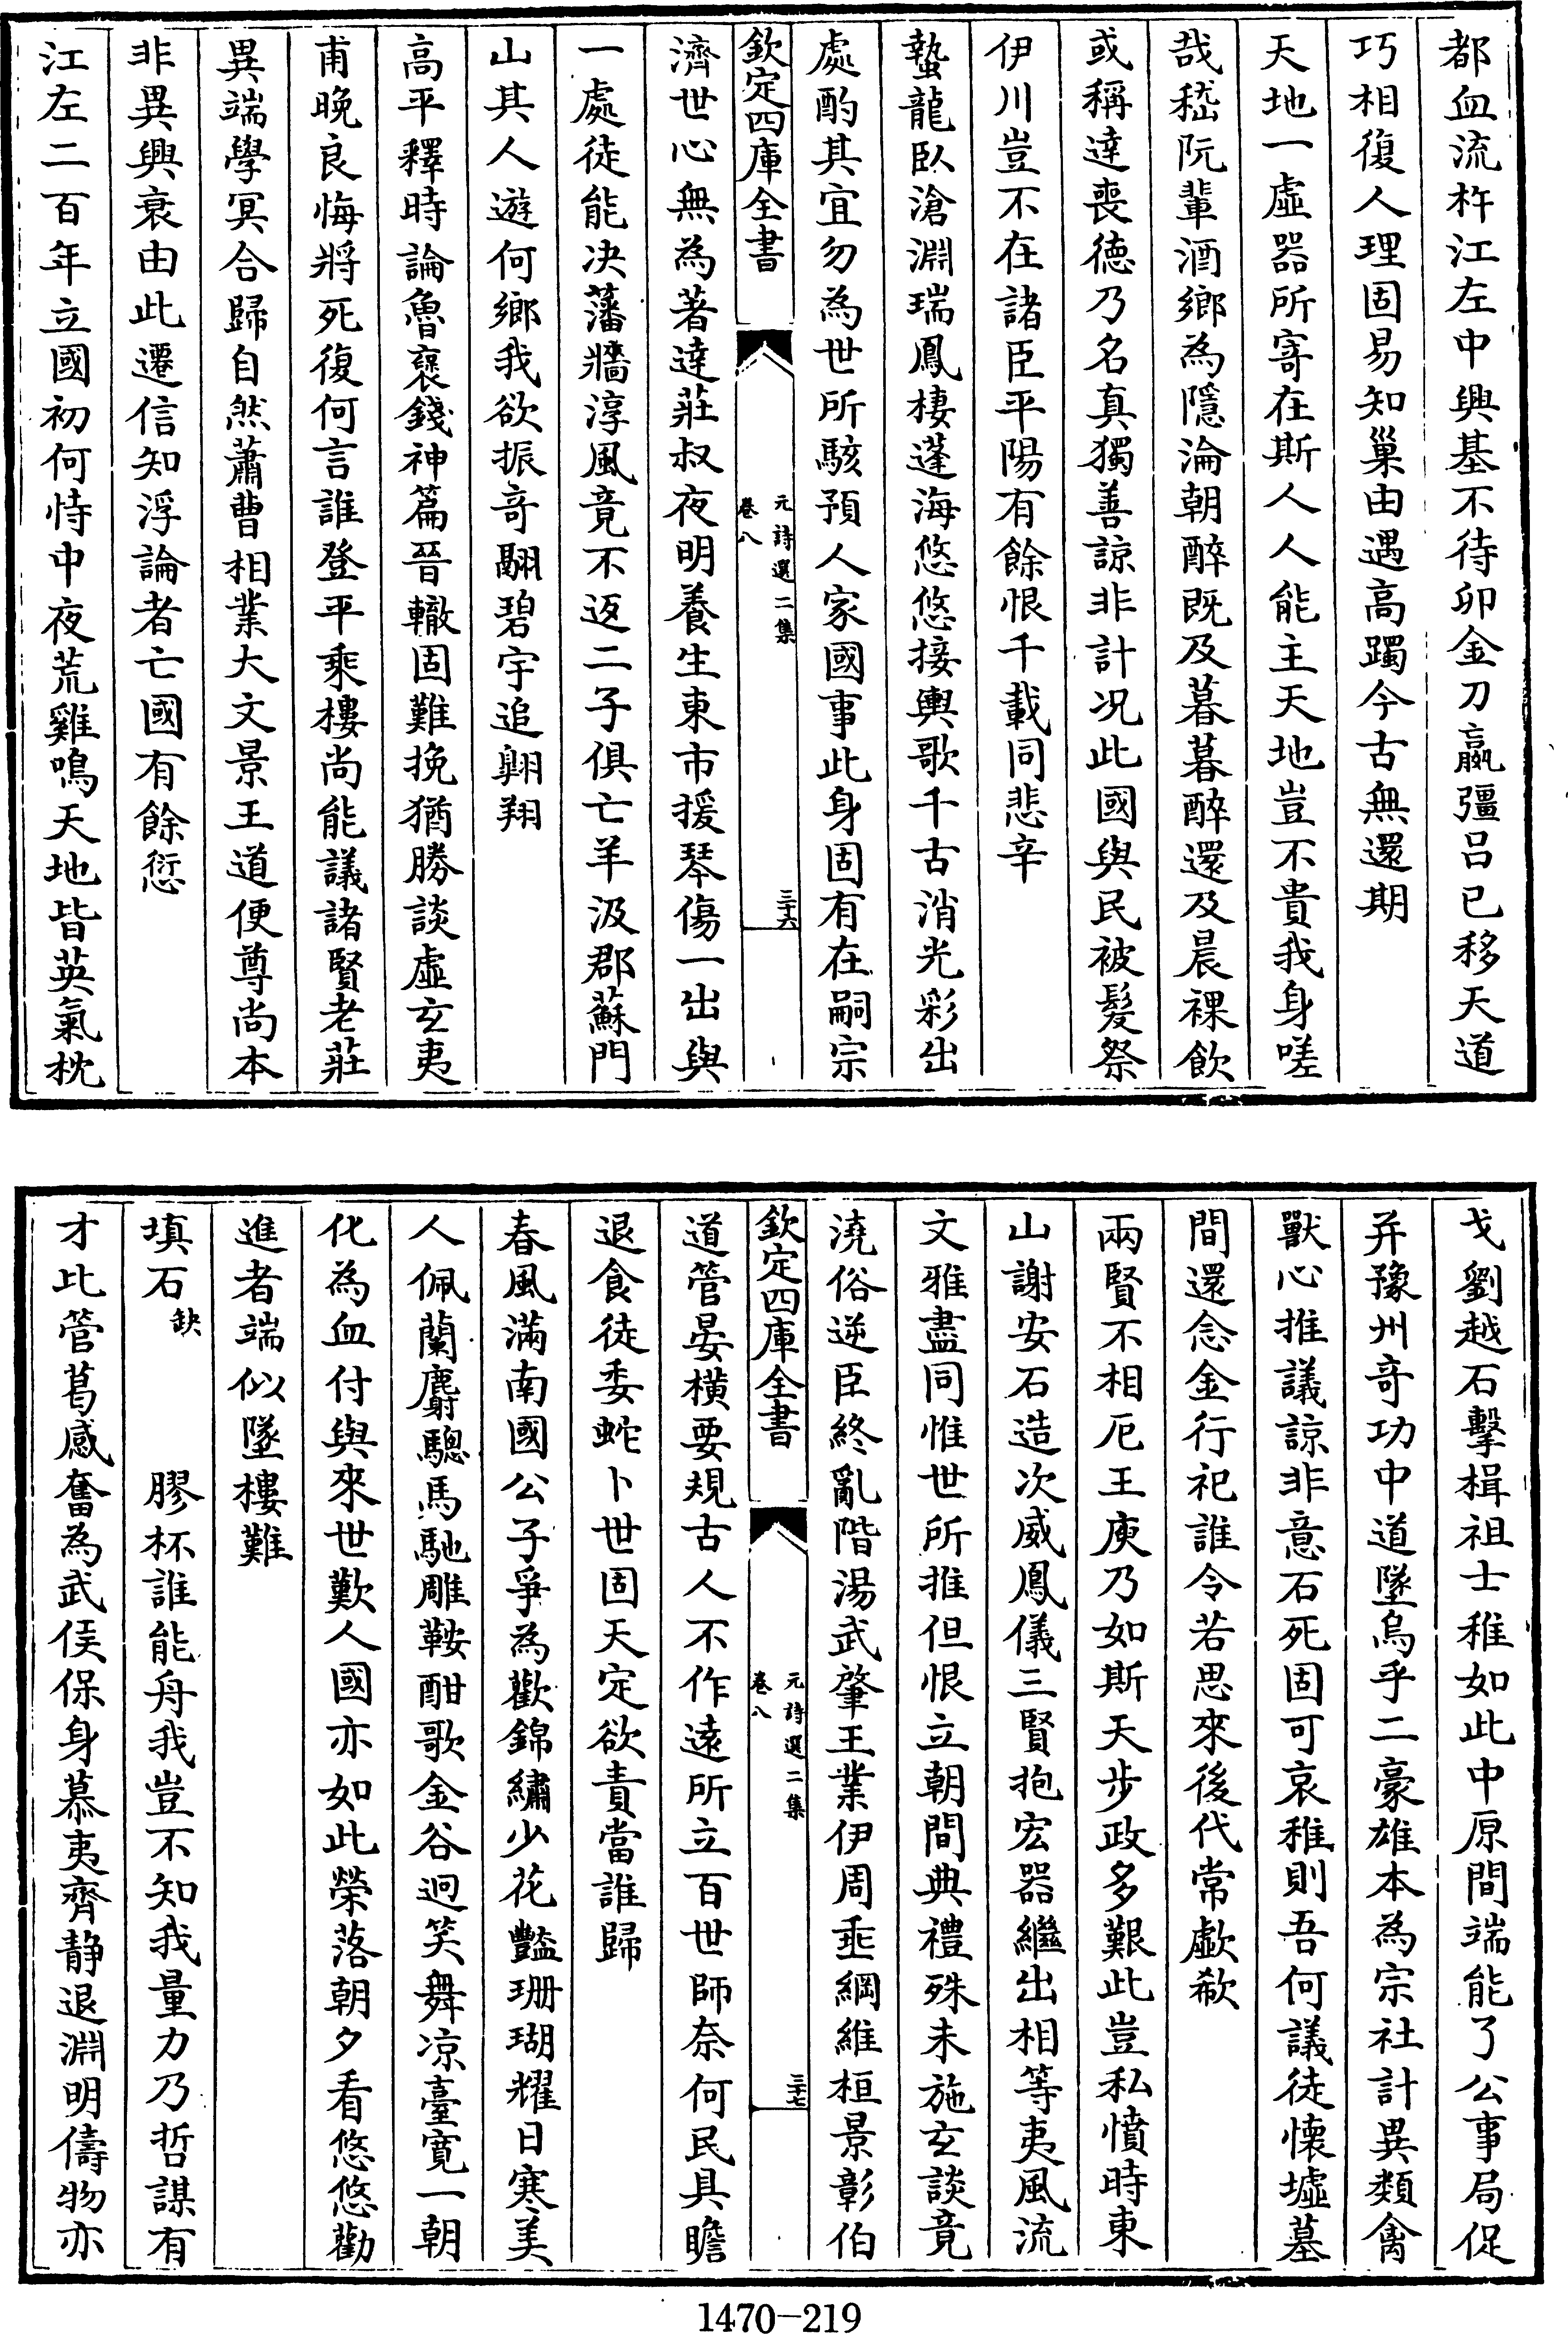 都血流杵江左中興基不待卯金刀嬴彊呂已移天道
巧相復人理固易知巢由遇高躅今古無還期
天地一虛器所寄在斯人人能主天地豈不貴我身嗟
哉嵇阮輩酒鄉為隱淪朝醉既及暮暮醉還及晨裸飲
或稱達喪德乃名真獨善諒非計況此國與民被髮祭
伊川豈不在諸臣平陽有餘恨千載同悲辛
蟄龍臥滄淵瑞鳳棲蓬海悠悠接輿歌千古消光彩出
處酌其宜勿為世所駭預人家國事此身固有在嗣宗
欽定四庫全書
元詩選二集
卷八
三十六
濟世心無為著達莊叔夜明養生東市援琴傷一出與
一處徒能決藩牆淳風竟不返二子俱亡羊汲郡蘇門
山其人遊何鄉我欲振奇翮碧宇追翺翔
高平釋時論魯褒錢神篇晉轍固難挽猶勝談虛玄夷
甫晚良悔將死復何言誰登平乘樓尚能議諸賢老莊
異端學冥合歸自然蕭曹相業大文景王道便尊尚本
非異興衰由此遷信知浮論者亡國有餘愆
江左二百年立國初何恃中夜荒雞鳴天地皆英氣枕
戈劉越石擊楫祖士稚如此中原間端能了公事局促
并豫州奇功中道墜烏乎二豪雄本為宗社計異類禽
獸心推議諒非意石死固可哀稚則吾何議徒懷墟墓
間還念金行祀誰令若思來後代常歔欷
兩賢不相厄王庾乃如斯天步政多艱此豈私憤時東
山謝安石造次威鳳儀三賢抱宏器繼出相等夷風流
文雅盡同惟世所推但恨立朝間典禮殊未施玄談竟
澆俗逆臣終亂階湯武肇王業伊周垂綱維桓景彰伯
欽定四庫全書
元詩選二集
卷八
三十七
道管晏橫要規古人不作遠所立百世師奈何民具瞻
退食徒委蛇卜世固天定欲責當誰歸
春風滿南國公子爭為歡錦繡少花豔珊瑚耀日寒美
人佩蘭麝驄馬馳雕鞍酣歌金谷迥笑舞凉臺寬一朝
化為血付與來世歎人國亦如此榮落朝夕看悠悠勸
進者端似墜樓難
填石缺　膠杯誰能舟我豈不知我量力乃哲謀有
才比管葛感奮為武侯保身慕夷齊靜退淵明儔物亦
1470-219